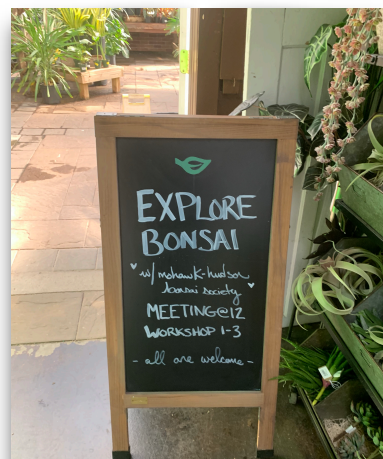 EXPLORE
BONSAI
w/ mohawk-hudson
bonsai society
MEETING@12
WORKSHOP 1-3
- all are welcome -